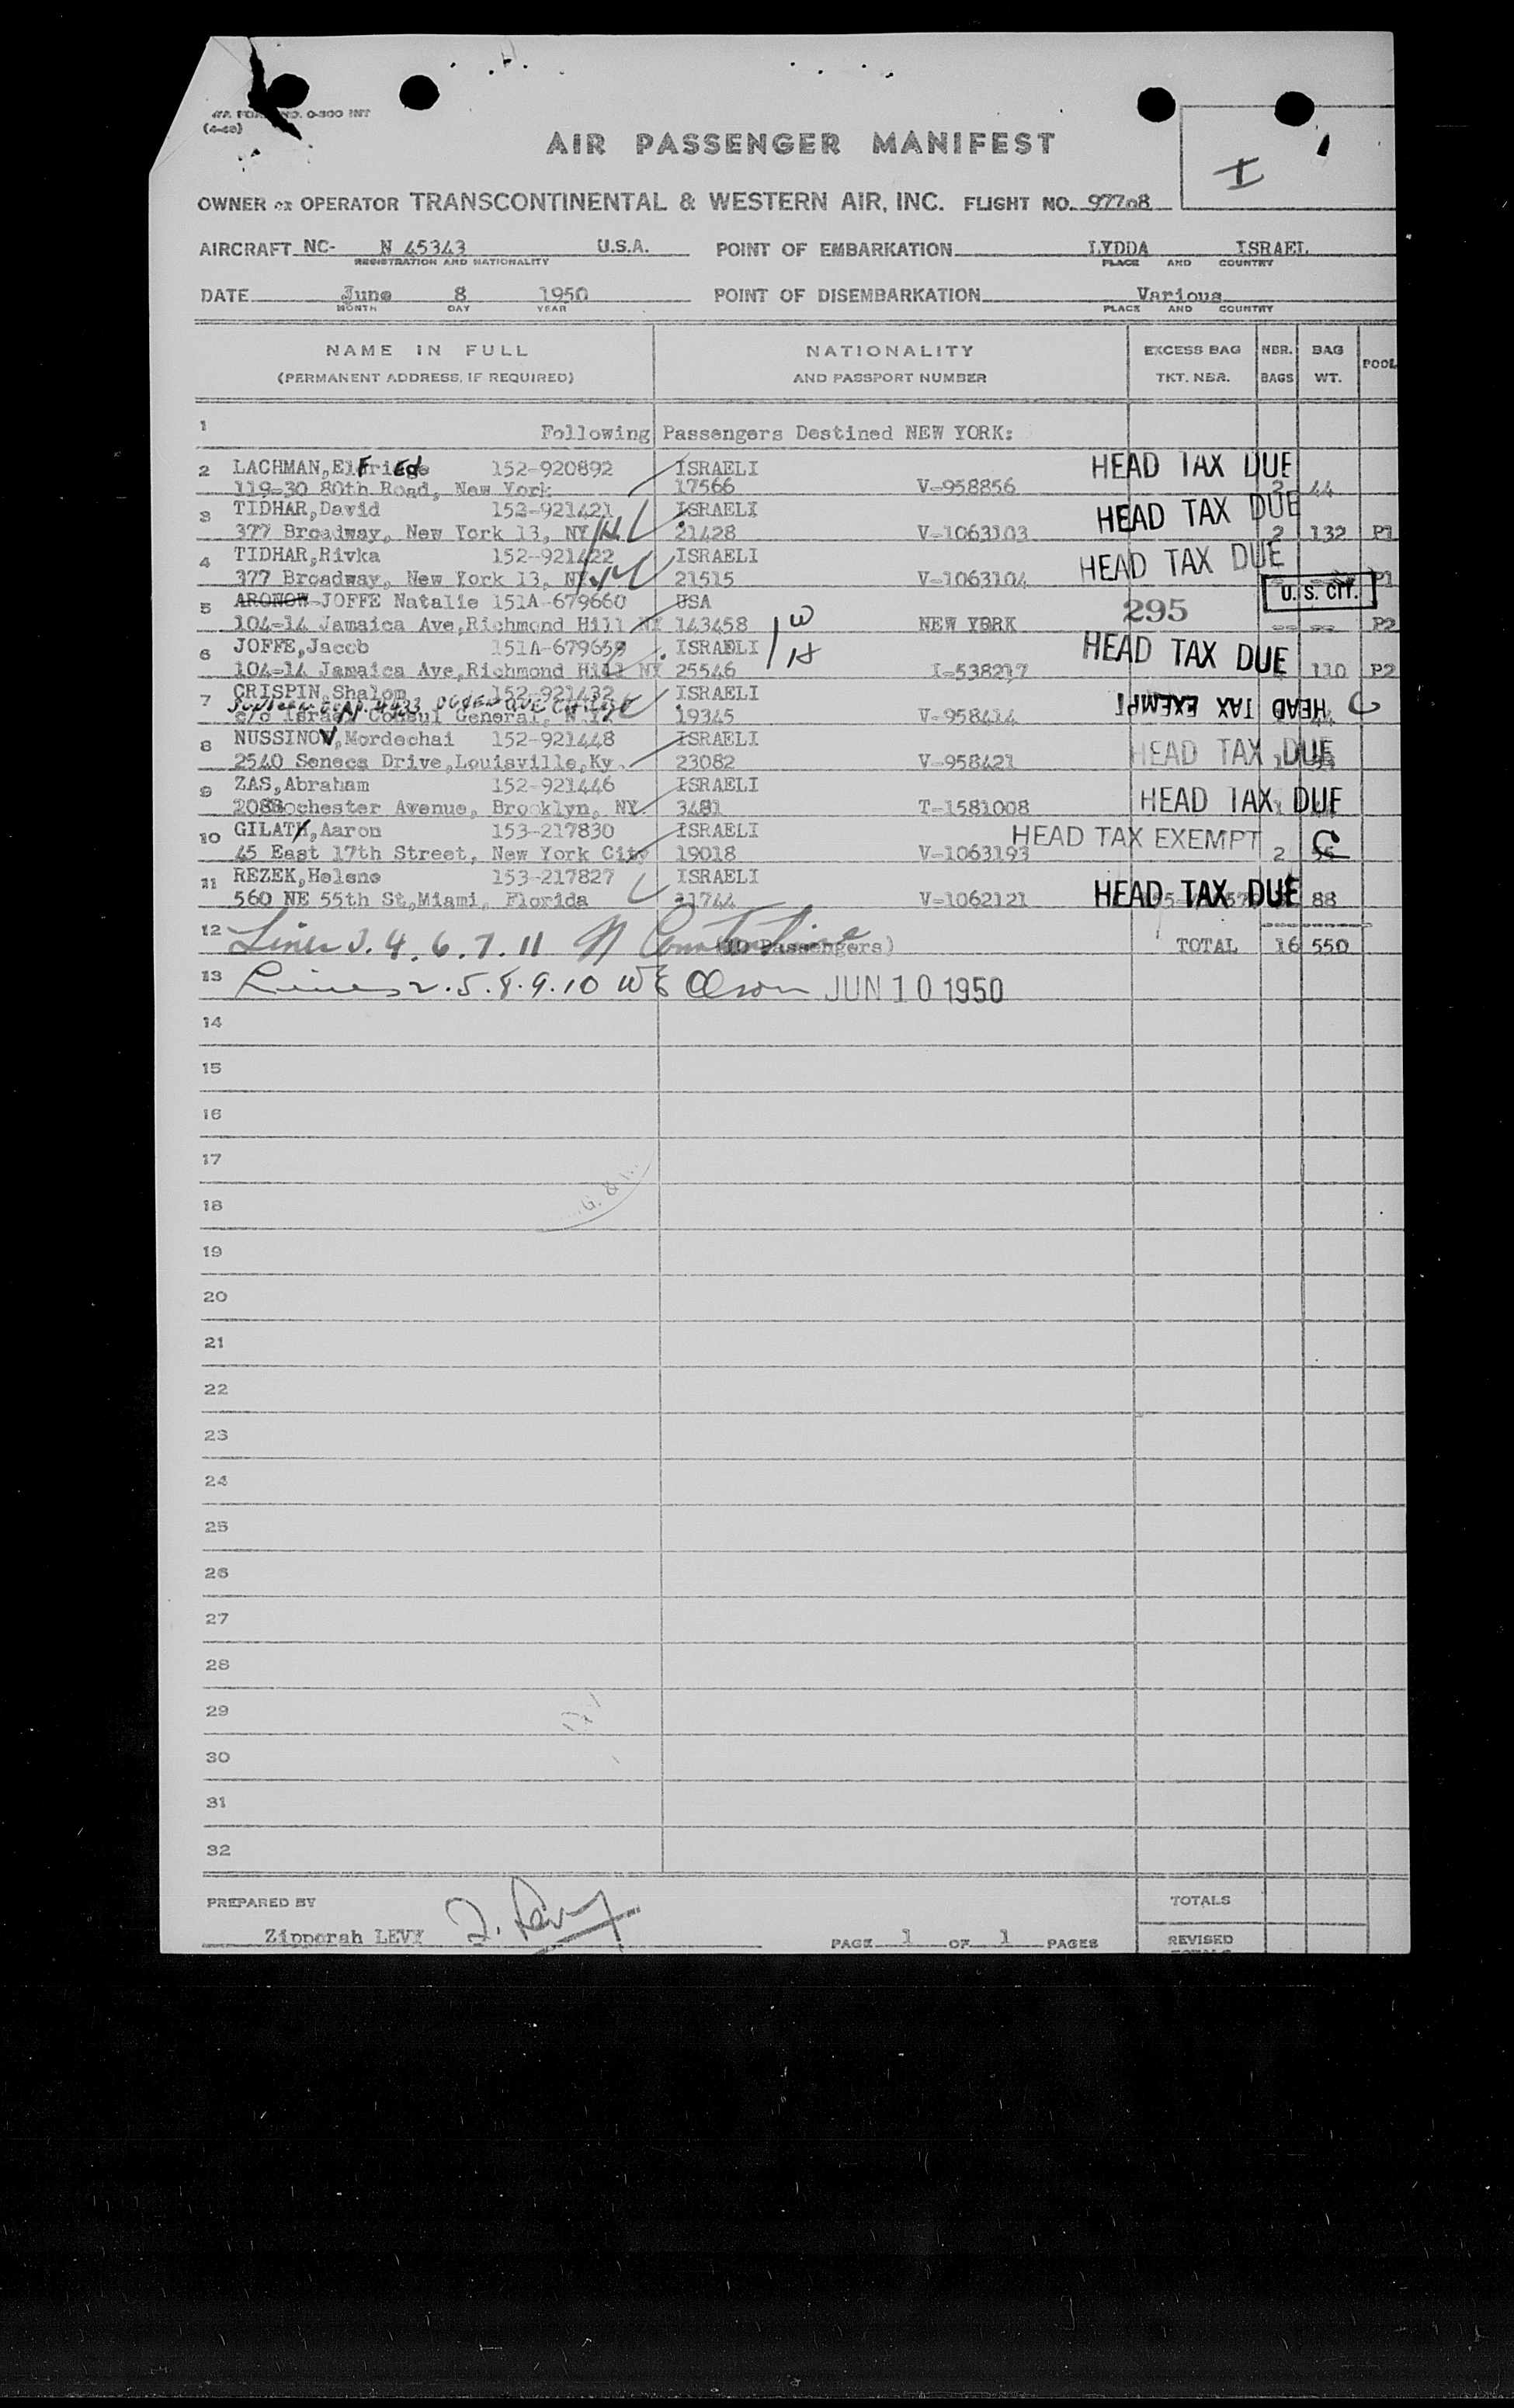 NO. 0-300 INT
(4-48)
AIR PASSENGER MANIFEST
I
OWNER or OPERATOR TRANSCONTINENTAL & WESTERN AIR, INC. FLIGHT NO. 97708
AIRCRAFT NC- N 45343 U.S.A. POINT OF EMBARKATION LYDDA ISRAEL
REGISTRATION AND NATIONALITY PLACE AND COUNTRY
DATE June 8 1950 POINT OF DISEMBARKATION Various
MONTH DAY YEAR PLACE AND COUNTRY
NAME IN FULL NATIONALITY EXCESS BAG NBR. BAG POOL
(PERMANENT ADDRESS, IF REQUIRED) AND PASSPORT NUMBER TKT. NBR. BAGS WT.
1 Following Passengers Destined NEW YORK:
2 LACHMAN, ElFriEde 152-920892 ISRAELI HEAD TAX DUE
119-30 80th Road, New York 17566 V-958856 2 44
3 TIDHAR,David 152-921421 ISRAELI HEAD TAX DUE
377 Broadway, New York 13, NY 21428 V-1063103 2 132 P1
4 TIDHAR,Rivka 152-921422 ISRAELI HEAD TAX DUE
377 Broadway, New York 13, NY 21515 V-1063104 P1
5 ARONOW JOFFE Natalie 151A-679660 USA 295 U. S. CIT.
104-14 Jamaica Ave,Richmond Hill NY 143458 W NEW YORK -- -- P2
6 JOFFE,Jacob 151A-679659 ISRAELI H HEAD TAX DUE
104-14 Jamaica Ave,Richmond Hill NY 25546 I-538217 110 P2
7 CRISPIN,Shalom 152-921432 ISRAELI HEAD TAX EXEMPT C
c/o Israel Consul General, N.Y. 19345 V-958414 44
8 NUSSINOV,Mordechai 152-921448 ISRAELI HEAD TAX DUE
2540 Seneca Drive,Louisville,Ky. 23082 V-958421 1
9 ZAS,Abraham 152-921446 ISRAELI HEAD TAX DUE
208 Rochester Avenue, Brooklyn, NY. 3481 T-1581008 1
10 GILATH,Aaron 153-217830 ISRAELI HEAD TAX EXEMPT C
45 East 17th Street, New York City 19018 V-1063193 2
11 REZEK,Helene 153-217827 ISRAELI HEAD TAX DUE
560 NE 55th St,Miami, Florida 31744 V-1062121 88
12 Lines 3. 4. 6. 7. 11 (10 Passengers) TOTAL 16 550
13 Lines 2. 5. 8. 9. 10 WE Olson JUN 10 1950
14
15
16
17
18
19
20
21
22
23
24
25
26
27
28
29
30
31
32
PREPARED BY TOTALS
Zipporah LEVY Z. Levy PAGE 1 OF 1 PAGES REVISED